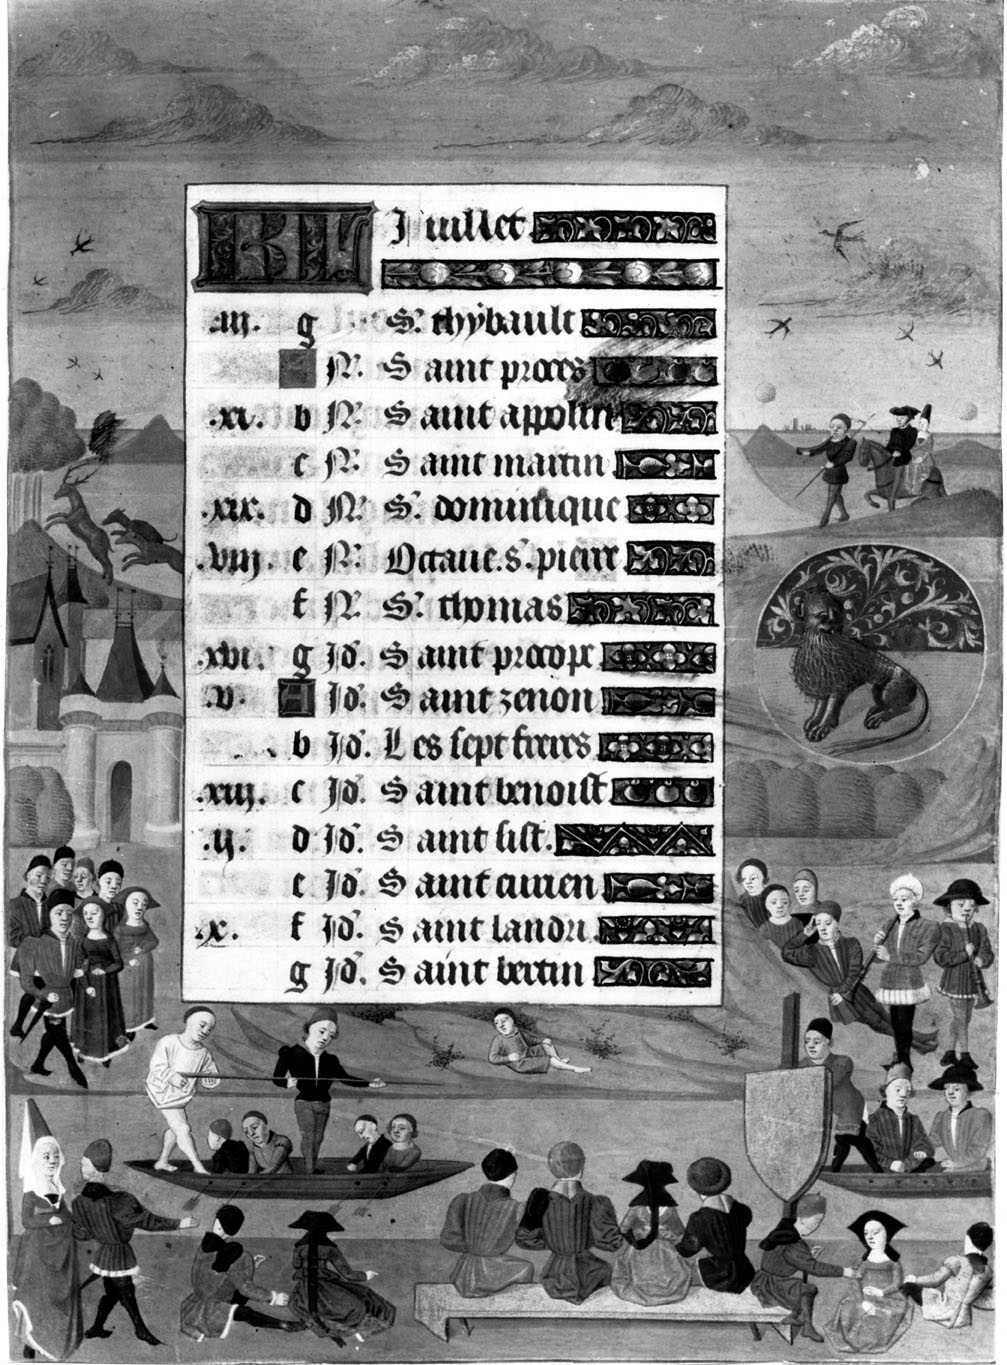 KL Juillet
.iii. g S. thybault
A N. Saint proces
.xi. b N. Saint appolin
c N. Saint martin
.xix. d N. S. dominique
.viii. e N. Octave. s. pierre
f N. S. thomas
.xvi. g Id. Saint procope
.v. A Id. Saint zenon
b Id. Les sept freres
.xiii. c Id. Saint benoist
.ii. d Id. Saint sist.
e Id. Saint
.x. f Id. Saint landri
g Id. Saint bertin